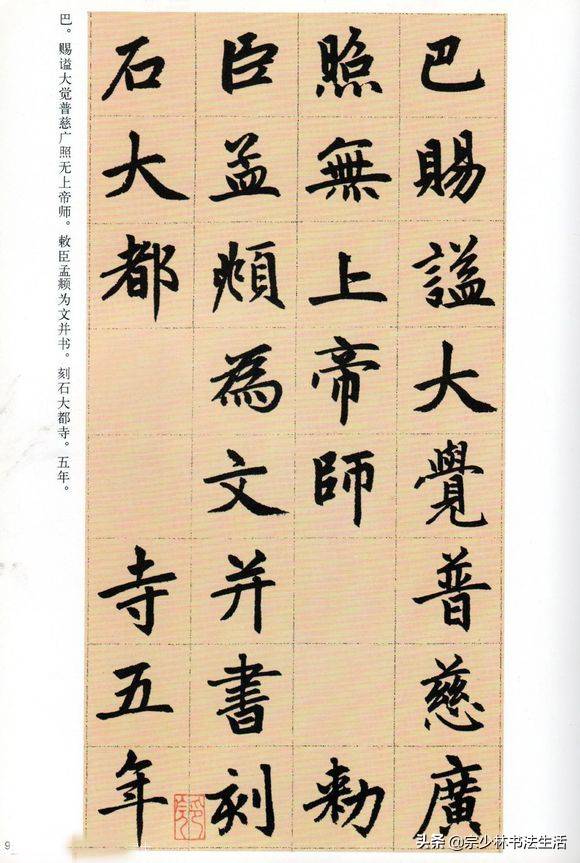 巴賜謚大覺普慈廣
照無上帝師　　勑
臣孟頫為文并書刻
石大都　　寺五年
巴。赐谥大觉普慈广照无上帝师。敕臣孟頫为文并书。刻石大都寺。五年。
9
头条 @宗少林书法生活